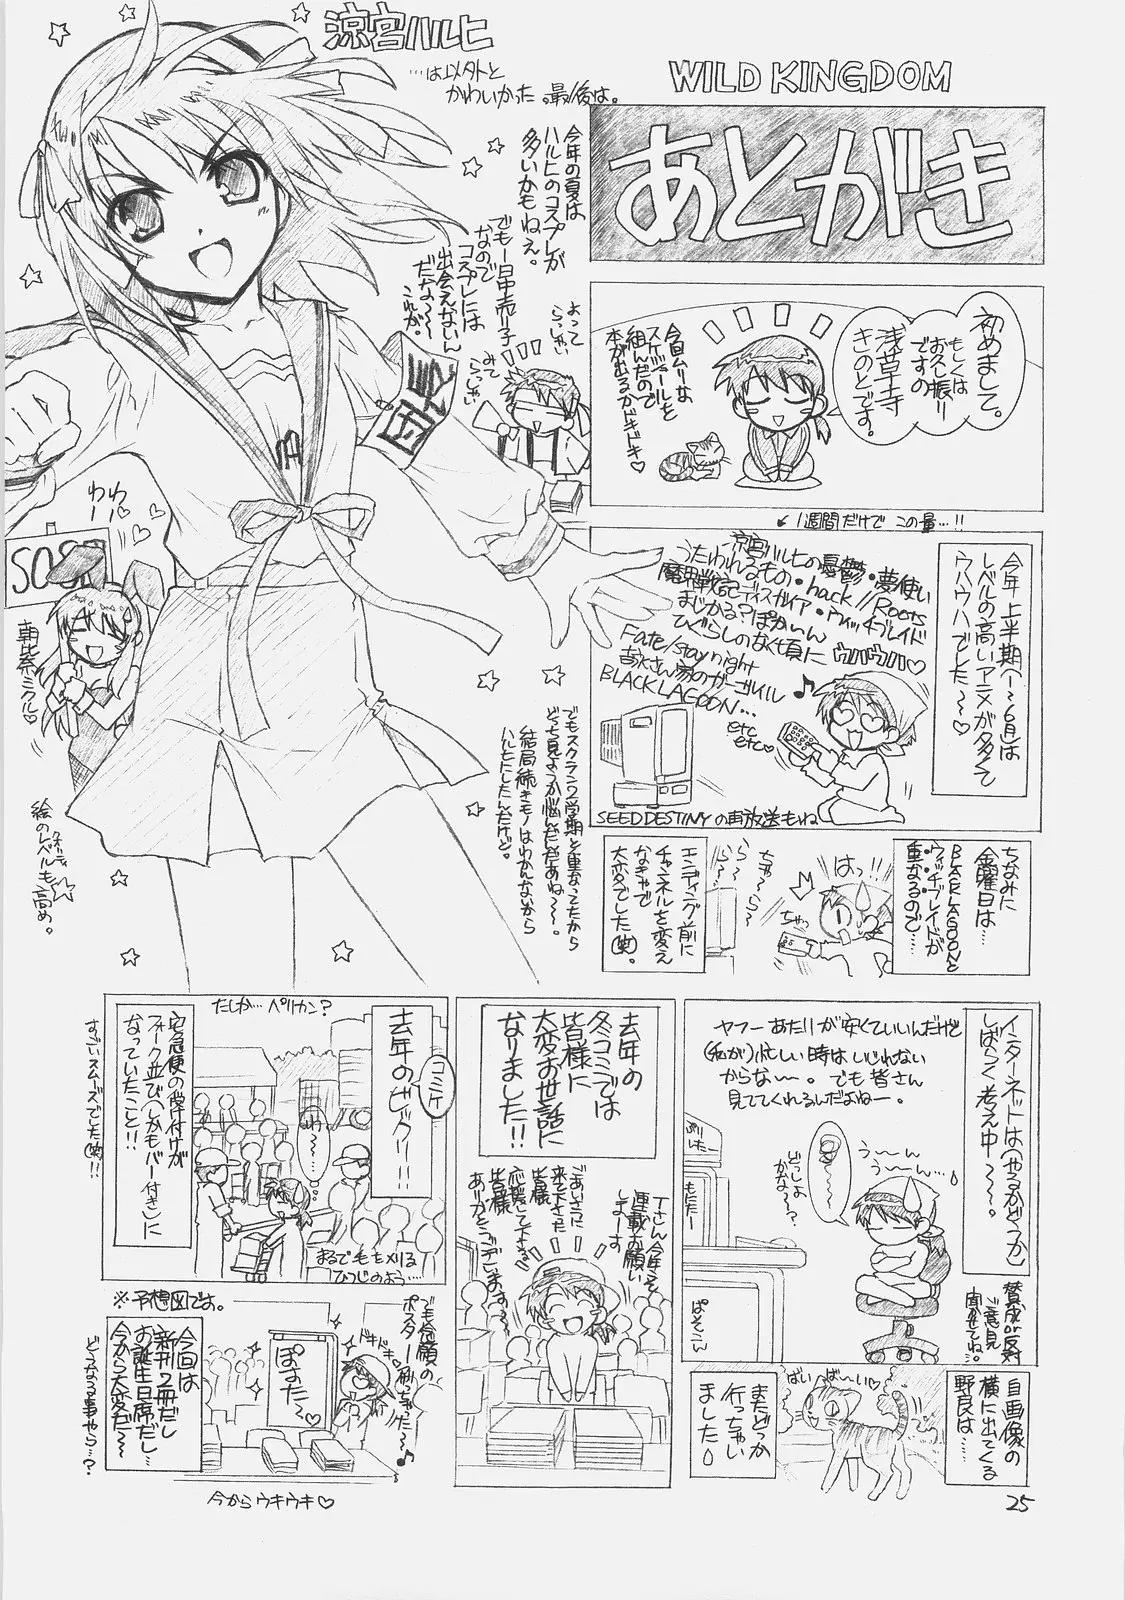 WILD KINGDOM
あとがき
涼宮ハルヒ
…は以外と
かわいかった。最後は。
今年の夏は
ハルヒのコスプレが
多いかもねぇ。
でもー日中売り子
なので
コスプレには
出会えないん
だな〜〜
これが。
よってらっしゃい
みてらっしゃい
団長
わー
わー
SOS
朝比奈ミクル♡
絵のレベルも高め。
クオリティ
初めまして。
もしくは
お久し振り
ですの
浅草寺
きのとです。
今回ムリーな
スケジュールを
組んだので
本が出るかドキドキ♡
↙1週間だけで この量…!!
今年上半期(1〜6月)は
レベルの高いアニメが多くて
ウハウハでした〜♡
涼宮ハルヒの憂鬱・夢使い
うたわれるもの・.hack//Roots
魔界戦記ディスガイア・ウィッチブレイド
まじかる?ぽかぃん
ひぐらしのなく頃に ウハウハ♡
Fate/stay night
吉永さん家のガーゴイル
BLACK LAGOON…
etc
etc♡
SEED DESTINYの再放送もね
でもスクラン2学期と重なってたから
どっち見ようか悩んだんだぁね〜〜。
結局続きモノはわかんないから
ハルヒにしたんだけど。
ちなみに
金曜日は…
BLACK LAGOONと
ウィッチブレイドが
重なるので…
はっ!!
ちゃっ
ちゃ〜ら
ら〜
ら〜
エンディング前に
チャンネルを変え
なきゃで
大変でした(笑)。
インターネットは(やるかどうか)
しばらく考え中〜〜。
ヤフーあたりが安くていいんだけど
(私が)忙しい時はいじれない
からな〜。でも皆さん
見ててくれるんだよねー。
う〜ん
う〜ん…
どっしよ
かな〜?
ぷりんたー
もにたー
ぱそこん
賛成or反対
ご意見
聞かせてね…
自画像の
横に出てくる
野良は…
ばい
ばーい♡
またどっか
行っちゃい
ました
去年の
冬コミでは
皆様に
大変お世話に
なりました!!
Tさん今年こそ
連載お願い
しまーす
ごあいさつに
来て下さった
皆様
応援して下さる
皆様
ありがとうございます〜
コミケ
去年のビックリ!!
たしか…ペリカン?
わ〜…
宅急便の受付けが
フォーク並び(しかもバー付き)に
なっていたこと!!
すごいスムーズでした(笑)!!
まるで毛を刈る
ひつじのよう…
※予想図です。
今回は
新刊2冊だし
お誕生日席だし…
今から大変だ〜
どうなる事やら…?
ぽすた〜
ドキドキ
でも念願の
ポスター刷っちゃった〜♪
今からウキウキ♡
25